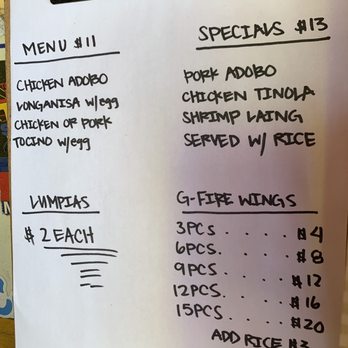 MENU $11
CHICKEN ADOBO
LONGANISA w/egg
CHICKEN OR PORK
TOCINO w/egg
SPECIALS $13
PORK ADOBO
CHICKEN TINOLA
SHRIMP LAING
SERVED W/ RICE
LUMPIAS
$2 EACH
G-FIRE WINGS
3PCS . . . . . $4
6PCS. . . . . $8
9PCS . . . . . $12
12PCS. . . . . $16
15PCS. . . . . $20
ADD RICE $3